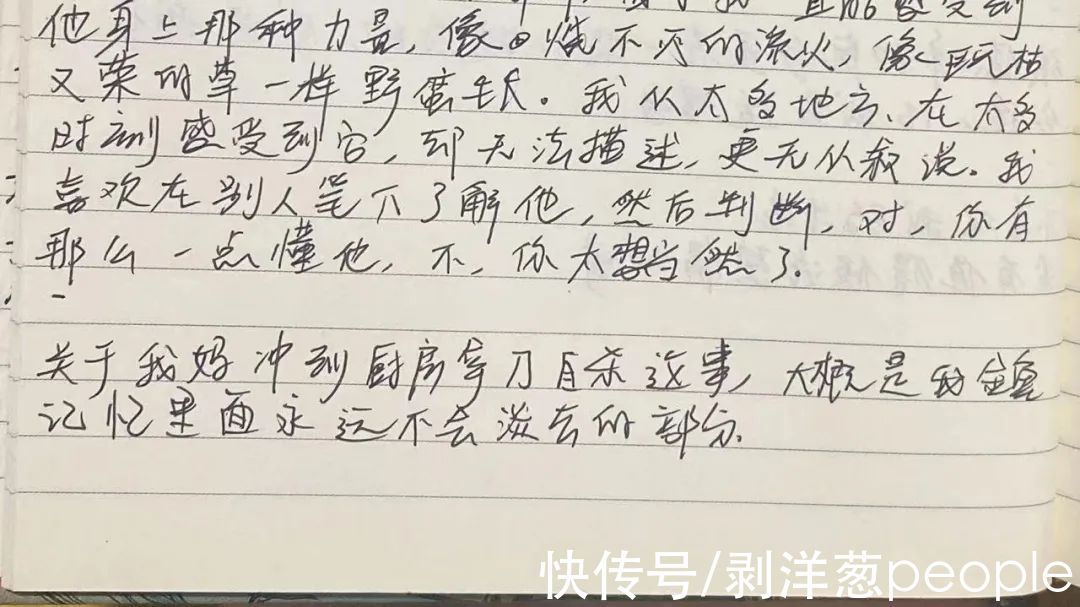 且能感受到
他身上那种力量，像烧不灭的流火，像一岁一枯
又荣的草一样野蛮生长。我从太多地方、在太多
时刻感受到它，却无法描述，更无从叙说。我
喜欢在别人笔下了解他，然后判断，对，你有
那么一点懂他，不，你太想当然了。
关于我妈冲到厨房拿刀自杀这事，大概是我
记忆里面永远不会淡去的部分。
快传号/剥洋葱people